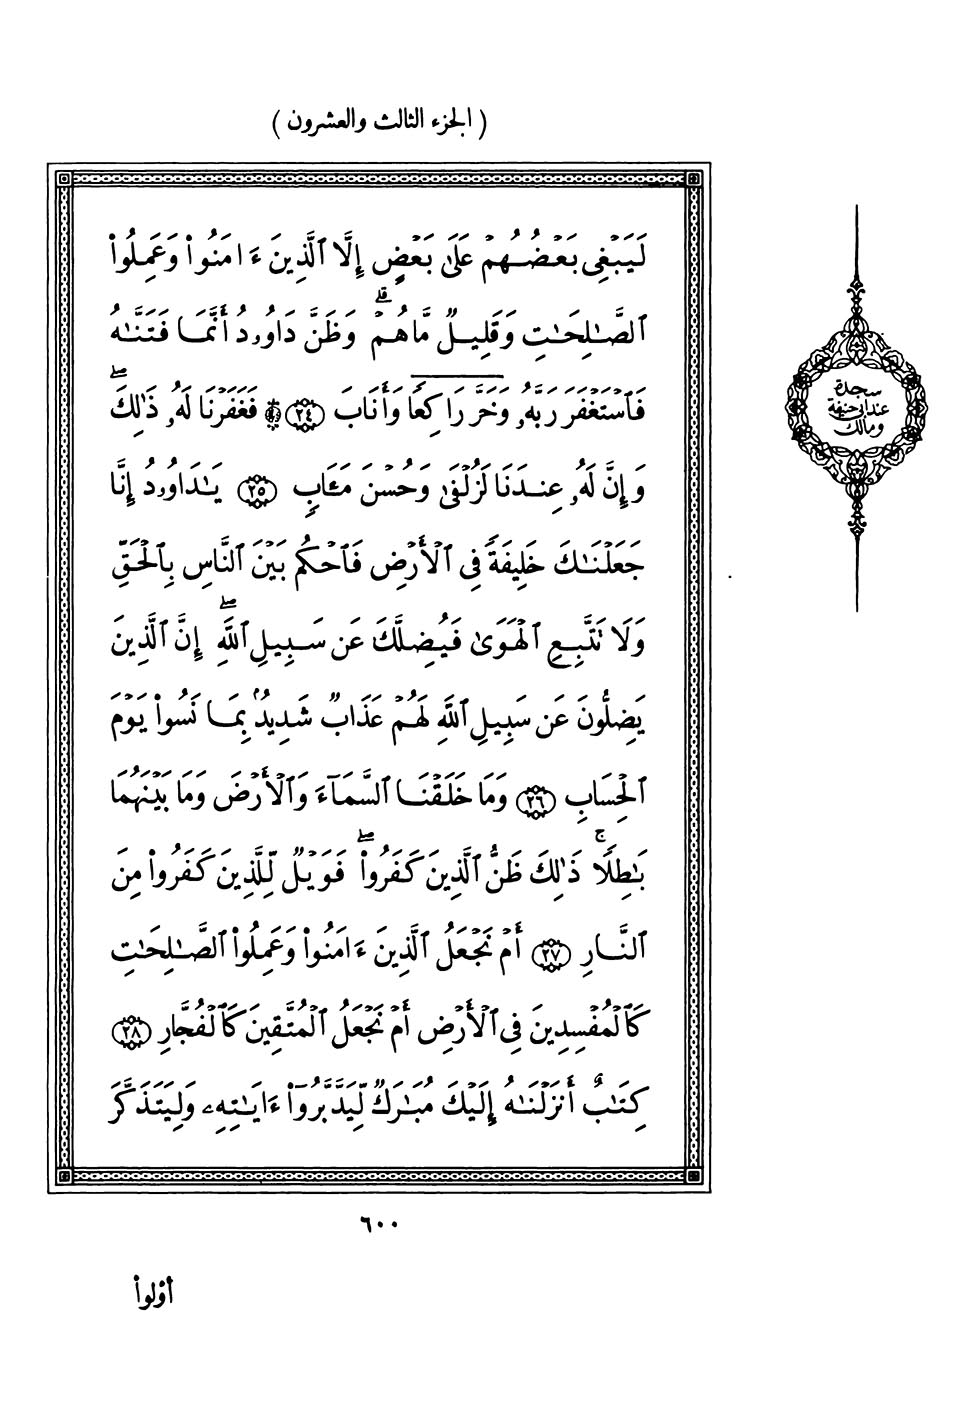 ( الجزء الثالث والعشرون )
لَيَبۡغِى بَعۡضُهُمۡ عَلَىٰ بَعۡضٍ إِلَّا ٱلَّذِينَ ءَامَنُواْ وَعَمِلُواْ
ٱلصَّـٰلِحَـٰتِ وَقَلِيلٌ مَّاهُمۡۗ وَظَنَّ دَاوُۥدُ أَنَّمَا فَتَنَّـٰهُ
فَٱسۡتَغۡفَرَ رَبَّهُۥ وَخَرَّ رَاكِعًا وَأَنَابَ ﴿٢٤﴾ ۩ فَغَفَرۡنَا لَهُۥ ذَٰلِكَۖ
وَإِنَّ لَهُۥ عِندَنَا لَزُلۡفَىٰ وَحُسۡنَ مَـَٔابٍ ﴿٢٥﴾ يَـٰدَاوُۥدُ إِنَّا
جَعَلۡنَـٰكَ خَلِيفَةً فِى ٱلۡأَرۡضِ فَٱحۡكُم بَيۡنَ ٱلنَّاسِ بِٱلۡحَقِّ
وَلَا تَتَّبِعِ ٱلۡهَوَىٰ فَيُضِلَّكَ عَن سَبِيلِ ٱللَّهِۖ إِنَّ ٱلَّذِينَ
يَضِلُّونَ عَن سَبِيلِ ٱللَّهِ لَهُمۡ عَذَابٌ شَدِيدُۢ بِمَا نَسُواْ يَوۡمَ
ٱلۡحِسَابِ ﴿٢٦﴾ وَمَا خَلَقۡنَا ٱلسَّمَآءَ وَٱلۡأَرۡضَ وَمَا بَيۡنَهُمَا
بَـٰطِلًاۚ ذَٰلِكَ ظَنُّ ٱلَّذِينَ كَفَرُواْۖ فَوَيۡلٌ لِّلَّذِينَ كَفَرُواْ مِنَ
ٱلنَّارِ ﴿٢٧﴾ أَمۡ نَجۡعَلُ ٱلَّذِينَ ءَامَنُواْ وَعَمِلُواْ ٱلصَّـٰلِحَـٰتِ
كَٱلۡمُفۡسِدِينَ فِى ٱلۡأَرۡضِ أَمۡ نَجۡعَلُ ٱلۡمُتَّقِينَ كَٱلۡفُجَّارِ ﴿٢٨﴾
كِتَـٰبٌ أَنزَلۡنَـٰهُ إِلَيۡكَ مُبَـٰرَكٌ لِّيَدَّبَّرُوٓاْ ءَايَـٰتِهِۦ وَلِيَتَذَكَّرَ
سجدة
عند ابى حنيفة
ومالك
٦٠٠
أوْلُواْ